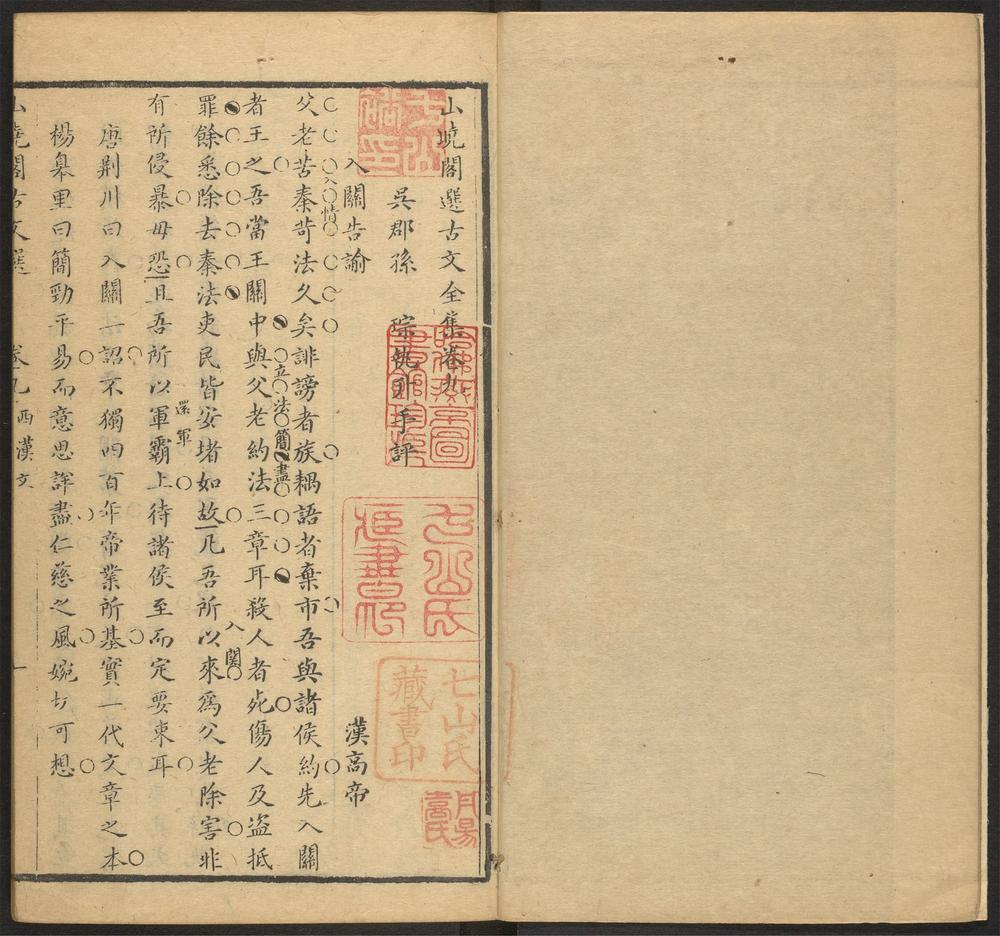 山曉閣選古文全集卷九
吳郡孫琮執升手評
入關告諭
漢高帝
父老苦秦苛法久矣誹謗者族耦語者棄市吾與諸侯約先入關
入情
者王之吾當王關中與父老約法三章耳殺人者死傷人及盜抵
立法簡盡
罪餘悉除去秦法吏民皆安堵如故凡吾所以來爲父老除害非
入關
有所侵暴毋恐且吾所以軍霸上待諸侯至而定要束耳
還軍
唐荆川曰入關一詔不獨四百年帝業所基實一代文章之本
楊臯里曰簡勁平易而意思詳盡仁慈之風婉切可想
山曉閣古文選
卷九
西漢文
一
七山氏藏書印